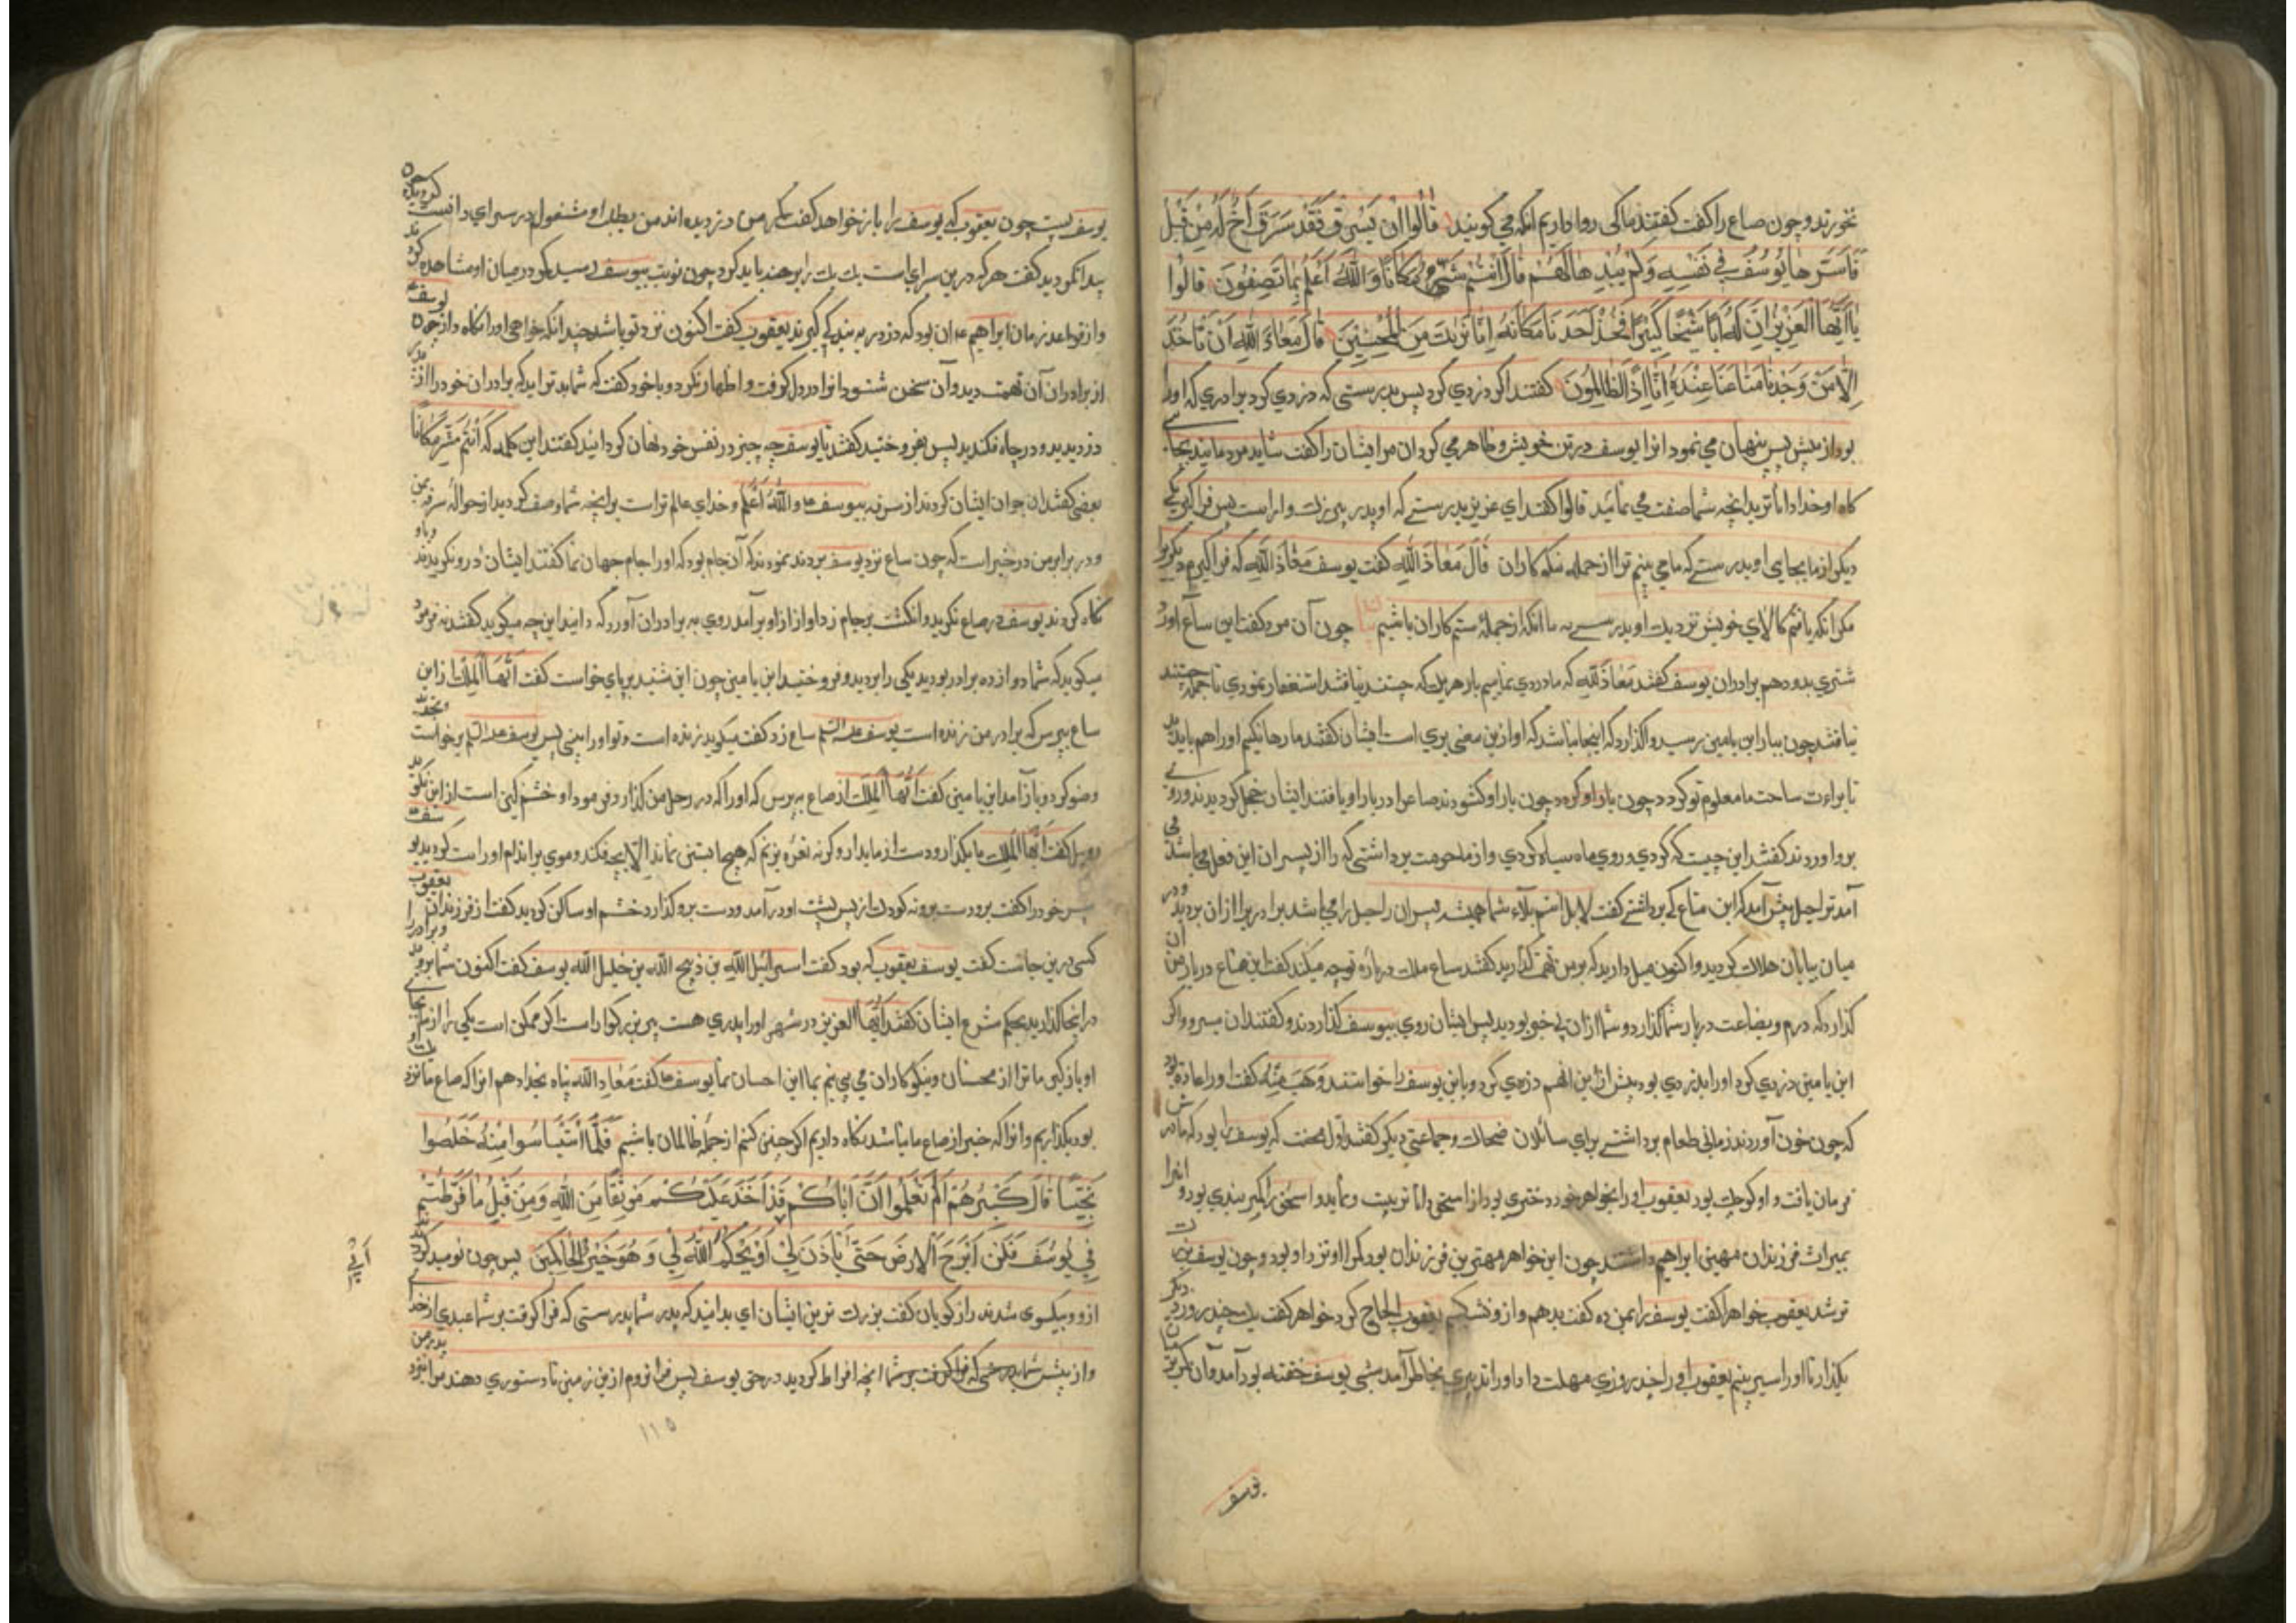 نخورند و چون صاع را گفت گفتند ما کی روا داریم انکه می گویند قَالُوا اِنْ يَسْرِقْ فَقَدْ سَرَقَ اَخٌ لَهُ مِنْ قَبْلُ
فَاَسَرَّهَا يُوسُفُ فِي نَفْسِهِ وَلَمْ يُبْدِهَا لَهُمْ قَالَ اَنْتُمْ شَرٌّ مَكَانًا وَاللّٰهُ اَعْلَمُ بِمَا تَصِفُونَ قَالُوا
يَا اَيُّهَا الْعَزِيزُ اِنَّ لَهُ اَبًا شَيْخًا كَبِيرًا فَخُذْ اَحَدَنَا مَكَانَهُ اِنَّا نَرٰيكَ مِنَ الْمُحْسِنِينَ قَالَ مَعَاذَ اللّٰهِ اَنْ نَاْخُذَ
اِلَّا مَنْ وَجَدْنَا مَتَاعَنَا عِنْدَهُ اِنَّا اِذًا لَظَالِمُونَ گفتند اکر دزدي کرد پس بدرستی که دزدي کرد برادري که اورا
بود از پیش پس پنهان می نمود انرا یوسف در تن خویش و ظاهر می کرد ان مر ایشان را گفت شما بد مردمانید بجا
کاه و خدا داناتر بدانچه شما صفت می نمائید قالوا گفتند اي عزیز بدرستی که او پدر پیر بزرک و اراست پس فرا کیر یکی
دیکر از ما بجاي او بدرستی که ما می بینم ترا از جمله نیکوکاران قَالَ مَعَاذَ اللّٰهِ گفت یوسف مَعَاذَ اللّٰهِ که فرا کیرم دیکریرا
مکر انکه یافتم کالاي خویش نزدیک او بدرستی که ما انکه از جملهٔ ستم کاران باشیم چون آن مرد گفت این ساع آورد
شتري بدو دهم برادران یوسف گفتند مَعَاذَ اللّٰهِ که ما دزدي نماییم بار هر یک که جستند نیافتند استغفار نمودي تا جمله جستند
نیافتند چون ببار ابن یامین رسید واگذارد که اینجا نباشد که او ازین معنی بري است ایشان گفتند ما رها نکنیم اورا هم باید دید
تا براءت ساحت ما معلوم تو کردد چون بار او کشودند صاع را در بار او یافتند ایشان خجل کردیدند و روي
برو اوردند گفتند این چیست که کردي و روي ماه سیاه کردي و از ما حرمت برداشتی که را از پسران این فعل می باشد
آمد ترا حیل پیش آمد که این متاع کی برداشتی گفت لا بل انتم بلاء شما همیشه پسران راحیل را می باشد برادر مرا از ان بردید و در
میان بیابان هلاک کردید و اکنون میل دارید که بر من تهمت گذارید گفتند ساع ملک در باره تو چه میکند گفت این متاع در بار من آن
گذارد که درم و بضاعت در بار شما گذارد و شما از ان بی خبر بودید پس ایشان روي بیوسف گذاردند و گفتند ان یسرق و اکر
ابن یامین دزدي کرد اورا برادري بود پیش از این انهم دزدي کرد و باین یوسف را خواستند وَهَب مُنَبِّه گفت اورا عادت بود
که چون خوان آوردند زمانی طعام برداشتی براي سائلان ضحاک و جماعتی دیکر گفتند اول محنت که یوسف را بود که مادرش
فرمان یافت و او کوچک بود یعقوب اورا بخواهر خود دختري بود از اسحق دانا تربیت و اسحق را کمر بندي بود و انرا
بمیراث فرزندان مهین ابراهیم داشتند چون این خواهر مهترین فرزندان بود کمر او نزد او بود و چون یوسف بزرکتر
شد یعقوب خواهر را گفت یوسف را بمن ده گفت بدهم و از و نشکیبم یعقوب الحاح کرد خواهر گفت یک چند روز دیکر
بگذار تا اورا سیر بینم یعقوب اورا چند روزي مهلت داد اورا تدبیري بخاطر آمد شبی یوسف خفته بود آمد و آن کمر بند
یوسف
یوسف بست چون یعقوب که یوسف را باز خواهد گفت کمر من دزدیده اند من بطلب او مشغولم در سراي دانست
پیدا نکردید گفت هر که درین سراي است یک یک را برهنه باید کرد چون نوبت بیوسف رسید کمر در میان او مشاهده کردند
و از قواعد زمان ابراهیم ع ان بود که دزد را به بندگی گیرند یعقوب گفت اکنون نزد تو باشد چندانکه خواهی اورا نکاه دار چون یوسف
از برادران آن تهمت دید و آن سخن شنود انرا در دل گرفت و اظهار نکرد و با خود گفت که شما بدتراید که برادران خود را از
دزدیدید و در چاه فکندید پس بفروختید گفتند تا یوسف چه چیز در نفس خود نهان کردانید گفتند این کلمه که اَنْتُمْ شَرٌّ مَكَانًا
بعضی گفتند ان جواب ایشان کردند از سرقه بیوسف ع وَاللّٰهُ اَعْلَمُ و خداي عالم تراست برانچه شما وصف کردید از حوالهٔ سرقه بمن
و در برابر من در خبر است که چون ساع نزد یوسف بردند نمودند که آن جام بود که اورا جام جهان نما گفتند ایشان درو نکریدند
نکاه کردند یوسف در صاع نکرید و انکشت بر جام زد آواز از او برآمد روي به برادران آورد که دانید این چه میکوید گفتند نه فرمود
میکوید که شما دوازده برادر بودید یکی را بردید و فروختید ابن یامین چون این شنید بر پاي خواست گفت اَيُّهَا الْمَلِكُ از این
ساع بپرس که برادر من زنده است یوسف علیه السلم ساع زد گفت میکوید زنده است و تو اورا بینی پس یوسف علیه السلم برخواست
وضو کرد و باز آمد ابن یامین گفت اَيُّهَا الْمَلِكُ از صاع بپرس که اورا که در رحل من گذارد فرمود او خشم کین است از این نکوید
روبیل گفت اَيُّهَا الْمَلِكُ ما بگذار و دست از ما بدار و کرنه نعره بزنم که هیچ ابستنی نماند اِلَّا بچه فکند و موي بر اندام او راست کردید
پسر خود را گفت برو دست برونه کودک از پس پشت او در آمد و دست برو گذارد خشم او ساکن کردید گفت از فرزندان یعقوب
کسی درین جا است گفت یوسف یعقوب که بود گفت اسرائیل اللّٰه بن ذبیح اللّٰه بن خلیل اللّٰه یوسف گفت اکنون شما بروید و برادر را
در اینجا گذارید بحکم شرع ایشان گفتند اَيُّهَا العزیز در شهر اورا پدري هست پیر بزرکوار است اکر ممکن است یکی را از ما بجاي
او باز کیر ما ترا از محسنان و نیکوکاران می بینم بما این احسان نما یوسف ع گفت مَعَاذ اللّٰه پناه بخدا دهم انرا که صاع ما نزد
بود بگذاریم و انرا که خبر از صاع ما نباشد نکاه داریم اکر چنین کنم از جمله ظالمان باشیم فَلَمَّا اسْتَيْاَسُوا مِنْهُ خَلَصُوا
نَجِيًّا قَالَ كَبِيرُهُمْ اَلَمْ تَعْلَمُوا اَنَّ اَبَاكُمْ قَدْ اَخَذَ عَلَيْكُمْ مَوْثِقًا مِنَ اللّٰهِ وَمِنْ قَبْلُ مَا فَرَّطْتُمْ
فِي يُوسُفَ فَلَنْ اَبْرَحَ الْاَرْضَ حَتّٰى يَاْذَنَ لِي اَبِي اَوْ يَحْكُمَ اللّٰهُ لِي وَهُوَ خَيْرُ الْحَاكِمِينَ پس چون نومید کردیدند
اَبِي
ازو و بیکسوي شدند راز کویان گفت بزرک ترین ایشان اي بدانید که پدر شما بدرستی که فرا کرفت بر شما عهدي از خداي
و از پیش شما بدرستی که فرا کرفت بر شما انچه افراط کردید در حق یوسف پس فرا نروم ازین زمین تا دستوري دهد مرا پدر من
۱۱۵